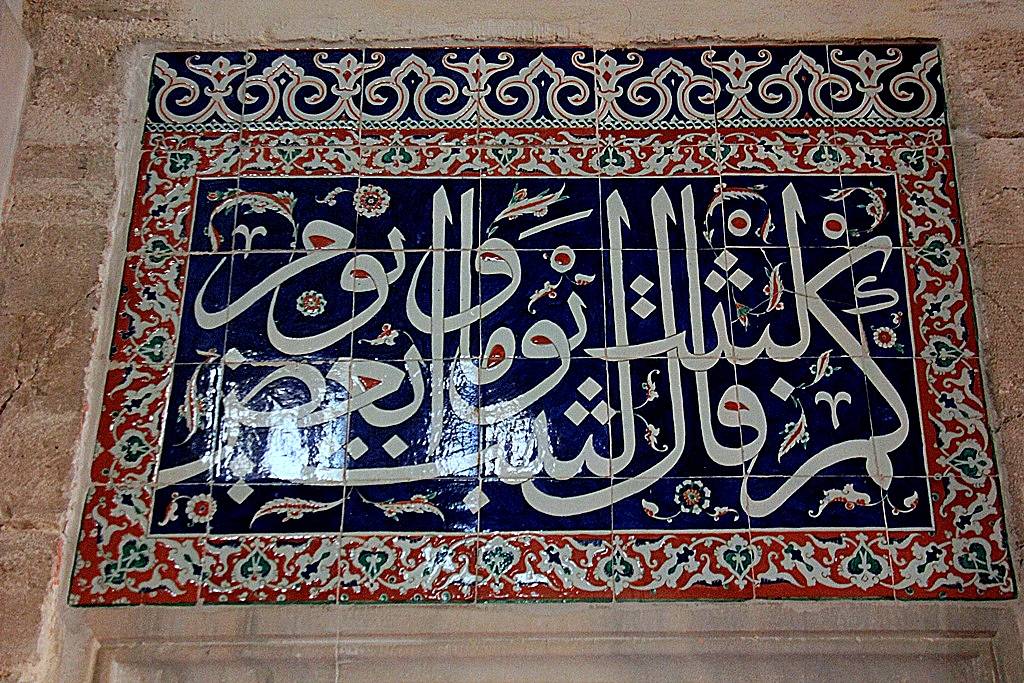 كم لبثت قال لبثت يوما او بعض يوم